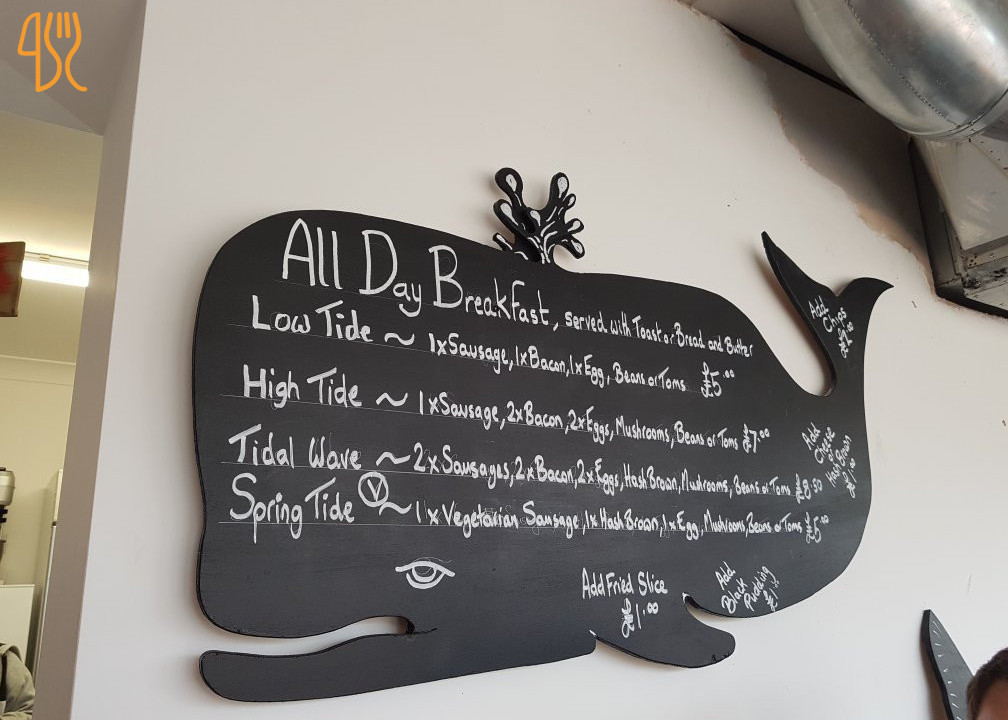 All Day Breakfast, served with Toast or Bread and Butter
Low Tide ~ 1xSausage, 1xBacon, 1xEgg, Beans or Toms £5.00
High Tide ~ 1xSausage, 2xBacon, 2xEggs, Mushrooms, Beans or Toms £7.00
Tidal Wave ~ 2xSausages, 2xBacon, 2xEggs, Hash Brown, Mushrooms, Beans or Toms £8.50
Spring Tide V ~ 1xVegetarian Sausage, 1xHash Brown, 1xEgg, Mushrooms, Beans or Toms £5
Add
Chips
Add
Cheese
or
Hash Brown
£1.00
Add Fried Slice
£1.00
Add
Black
Pudding